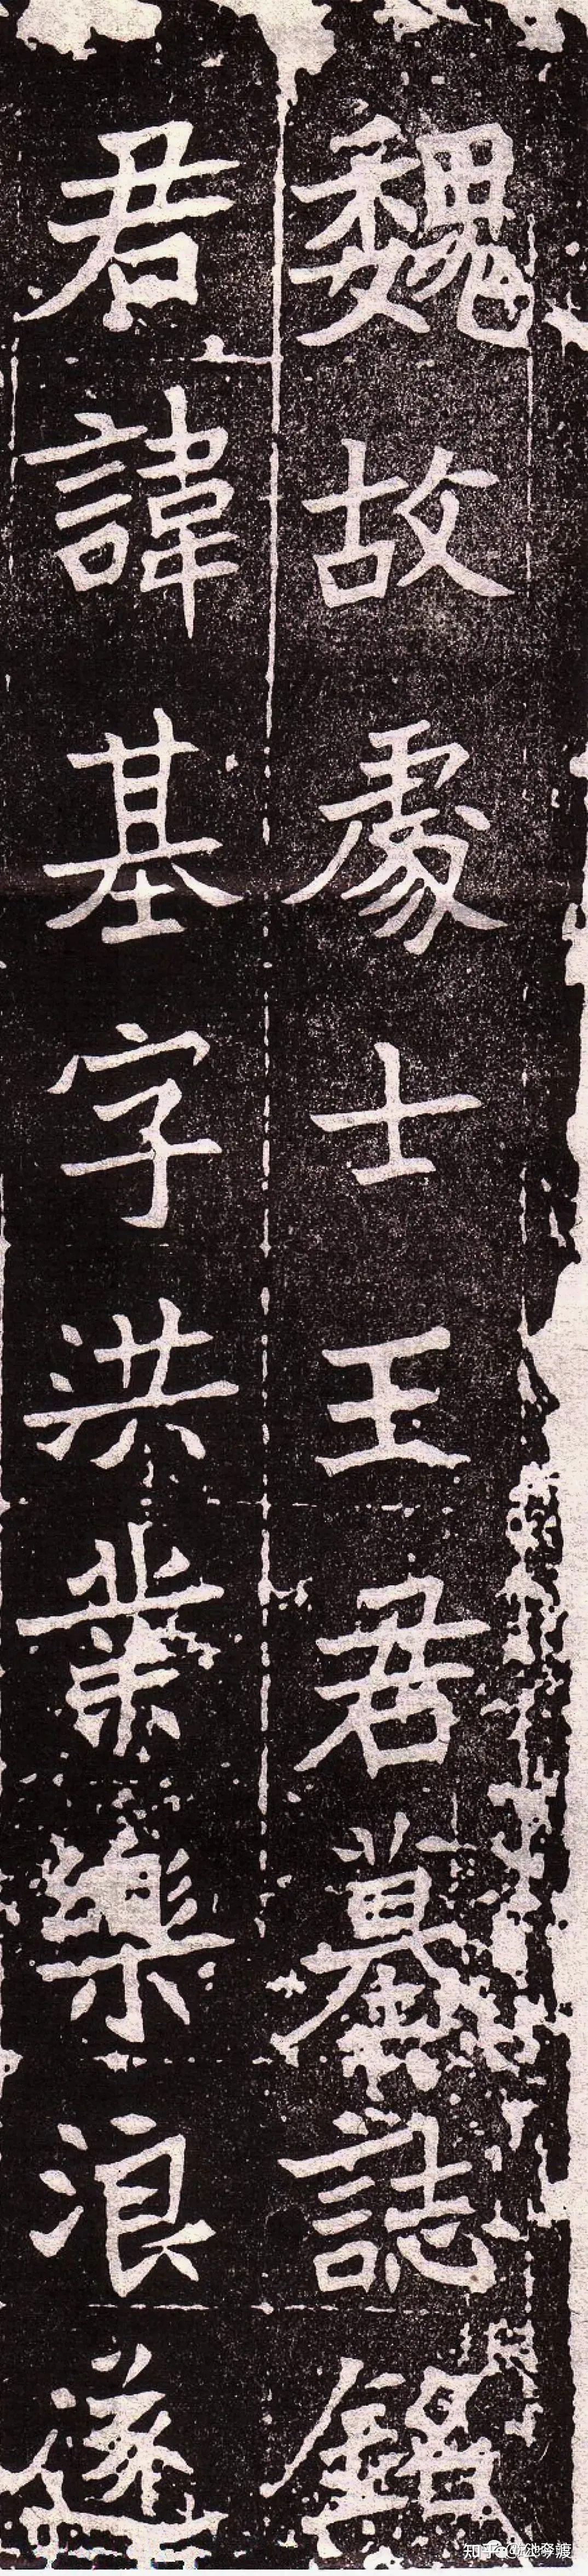 魏故處士王君墓誌銘
君諱基字洪業樂浪遂
知乎 @